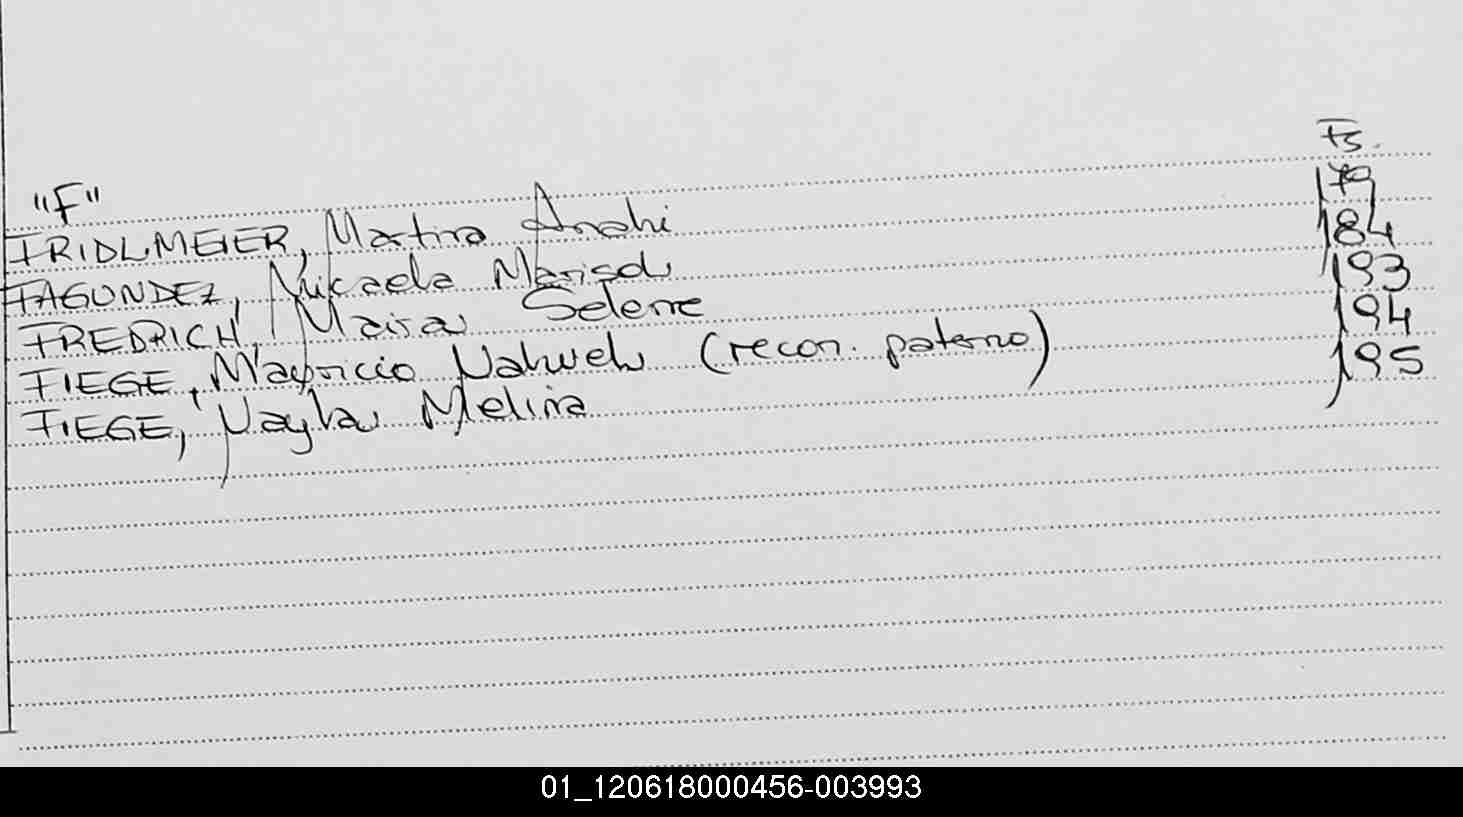 Fs.
"F"
FRIDLMEIER, Martina Anahi 179
FAGUNDEZ, Mikaela Marisol 184
FREDRICH, Maira Selene 193
FIEGE, Mauricio Nahuel (recon. paterno) 194
FIEGE, Nayla Melina 195
01_120618000456-003993